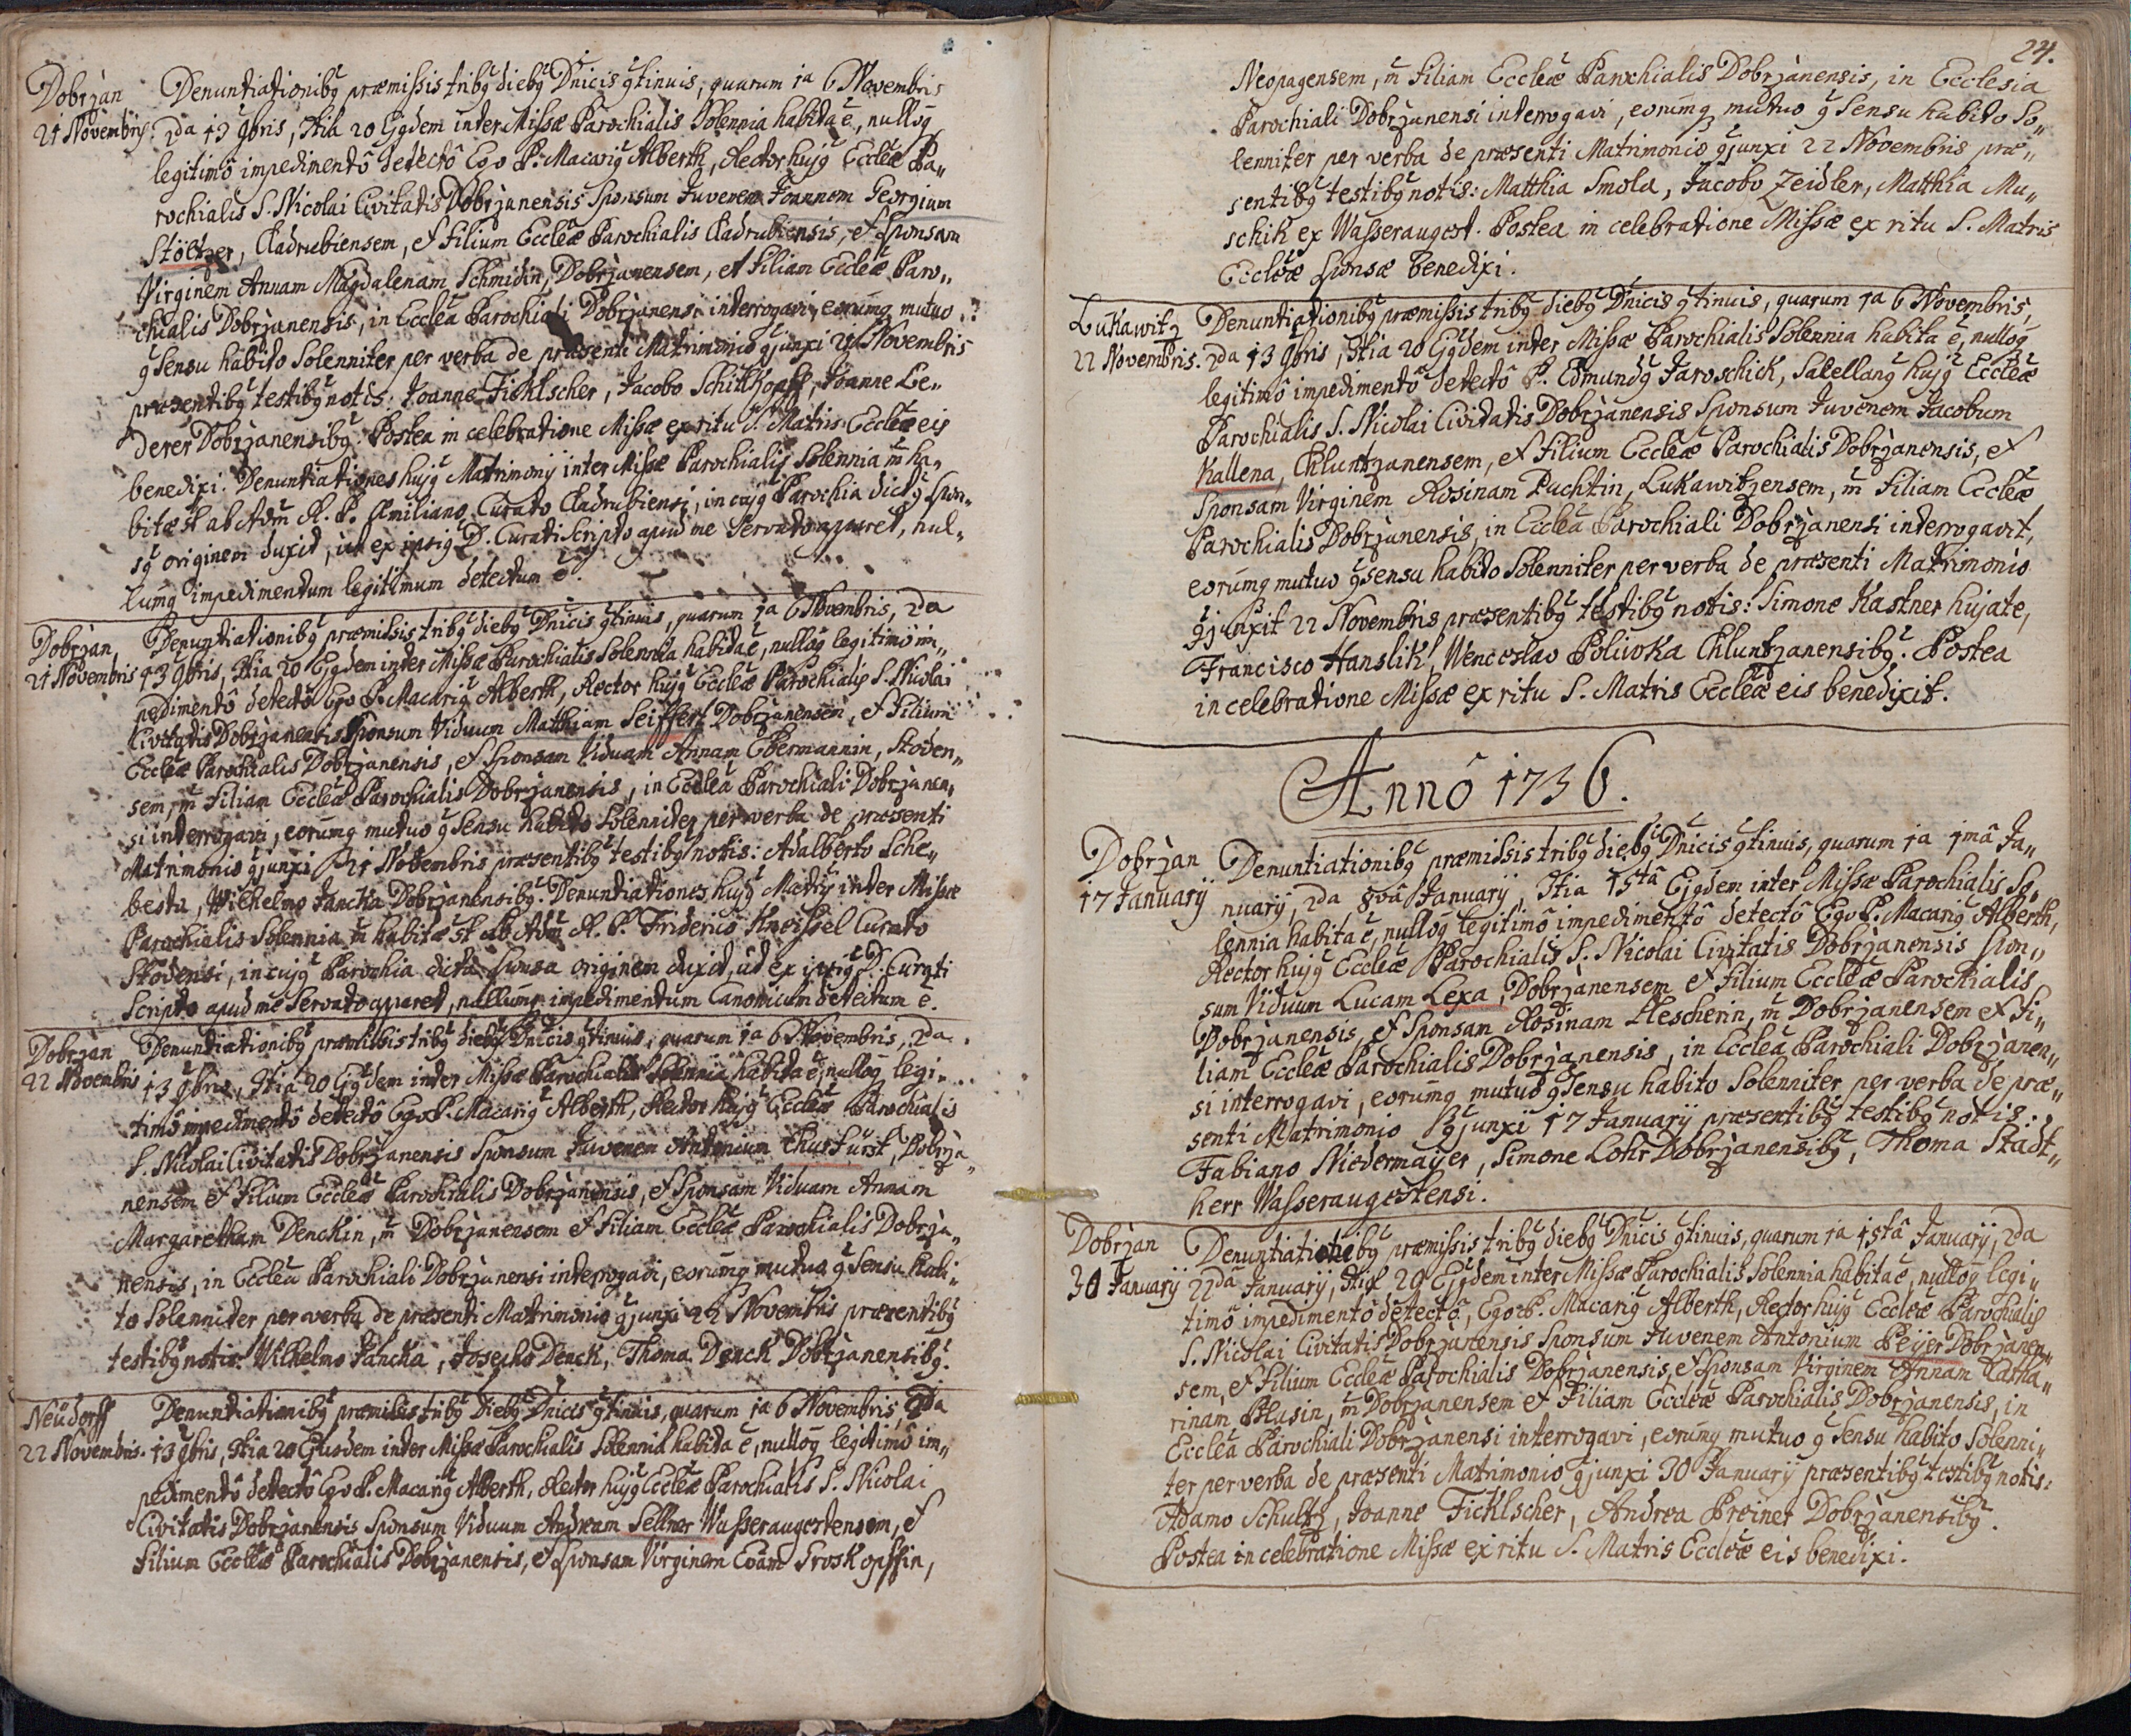 Dobrzan
21 Novembris.
Denuntiationibꝰ præmissis tribꝰ diebꝰ Dn̄icis ꝯtinuis, quarum 1a 6 Novembris
2da 13 9bris, 3tia 20 Ejꝰdem inter Missæ Parochialis Solennia habita ē, nulloq̄
legitimô impedimentô detectô Ego P. Macariꝰ Alberth, Rector hujꝰ Eccl̄æ Pa„
rochialis S. Nicolai Civitatis Dobrzanensis Sponsum Juvenem Joannem Georgium
Stöltzer, Cladrubiensem, et Filium Eccl̄æ Parochialis Cladrubiensis, et Sponsam
Virginem Annam Magdalenam Schmidin, Dobrzanensem, et Filiam Eccl̄æ Paro„
chialis Dobrzanensis, in Eccl̄a Parochiali Dobrzanensi interrogavi, eorumq̄ mutuo
ꝯsensu habito Solenniter per verba de præsenti Matrimonio ꝯjunxi 21 Novembris
præsentibꝰ testibꝰ notis: Joanne Ficklscher, Jacobo Schitkopff, Joanne Le„
derer Dobrzanensibꝰ. Postea in celebratione Missæ ex ritu S. Matris Eccl̄æ eis
benedixi. Denuntiationes hujꝰ Matrimonij inter Missæ Parochialis Solennia m̄ ha„
bitæ st̄ ab Adm̄ R. P. Æmiliano Curato Cladrubiensi, in cujꝰ Parochia dictꝰ Spon„
sꝰ originem duxit, ut ex ipsiꝰ D. Curati Scripto apud me Servato apparet, nul„
lumq̄ impedimentum legitimum detectum ē.
Dobrzan,
21 Novembris
Denuntiationibꝰ præmissis tribꝰ diebꝰ Dn̄icis ꝯtinuis, quarum 1a 6 Novembris, 2da
13 9bris, 3tia 20 Ejꝰdem inter Missæ Parochialis Solennia habita ē, nulloq̄ legitimô im„
pedimentô detectô Ego P. Macariꝰ Alberth, Rector hujꝰ Eccl̄æ Parochialis S. Nicolai
Civitatis Dobrzanensis Sponsum Viduum Matthiam Seiffert Dobrzanensem, et Filium
Eccl̄æ Parochialis Dobrzanensis, et Sponsam Viduam Annam Ebermannin, Stoden„
sem, m̄ Filiam Eccl̄æ Parochialis Dobrzanensis, in Eccl̄a Parochiali Dobrzanen„
si interrogavi, eorumq̄ mutuo ꝯsensu habito Solenniter per verba de præsenti
Matrimonio ꝯjunxi 21 Novembris præsentibꝰ testibꝰ notis: Adalberto Sche„
besta, Wilhelmo Jancka Dobrzanensibꝰ. Denuntiationes hujꝰ Matrij inter Missæ
Parochialis Solennia m̄ habitæ st̄ ab Adm̄ R. P. Friderico Kneissel Curato
Stodensi, in cujꝰ Parochia dicta Sponsa originem duxit, ut ex ipsiꝰ D. Curati
Scripto apud me Servato apparet, nullumq̄ impedimentum Canonicum detectum ē.
Dobrzan
22 Novembris
Denuntiationibꝰ præmissis tribꝰ diebꝰ Dn̄icis ꝯtinuis, quarum 1a 6 Novembris, 2da
13 9bris, 3tia 20 Ejꝰdem inter Missæ Parochialis Solennia habita ē, nulloq̄ legi„
timô impedimentô detectô Ego P. Macariꝰ Alberth, Rector hujꝰ Eccl̄æ Parochialis
S. Nicolai Civitatis Dobrzanensis Sponsum Juvenem Antonium Churfürst, Dobrza„
nensem et Filium Eccl̄æ Parochialis Dobrzanensis, et Sponsam Viduam Annam
Margaretham Denckin, m̄ Dobrzanensem et Filiam Eccl̄æ Parochialis Dobrza„
nensis, in Eccl̄a Parochiali Dobrzanensi interrogavi, eorumq̄ mutuo ꝯsensu habi„
to Solenniter per verba de præsenti Matrimonio ꝯjunxi 22 Novembris præsentibꝰ
testibꝰ notis: Wilhelmo Jancka, Josepho Denck, Thoma Denck Dobrzanensibꝰ.
Neüdorff
22 Novembris.
Denuntiationibꝰ præmissis tribꝰ diebꝰ Dn̄icis ꝯtinuis, quarum 1a 6 Novembris, 2da
13 9bris, 3tia 20 Ejusdem inter Missæ Parochialis Solennia habita ē, nulloq̄ legitimô im„
pedimentô detectô Ego P. Macariꝰ Alberth, Rector hujꝰ Eccl̄æ Parochialis S. Nicolai
Civitatis Dobrzanensis Sponsum Viduum Andream Sellner Wasseraugestensem, et
Filium Eccl̄æ Parochialis Dobrzanensis, et Sponsam Virginem Evam Froskopffin,
24.
Neopagensem, m̄ Filiam Eccl̄æ Parochialis Dobrzanensis, in Ecclesia
Parochiali Dobrzanensi interrogavi, eorumq̄ mutuo ꝯsensu habito So„
lenniter per verba de præsenti Matrimonio ꝯjunxi 22 Novembris præ„
sentibꝰ testibꝰ notis: Matthia Smola, Jacobo Zeidler, Matthia Mu„
schik ex Wasseraugest. Postea in celebratione Missæ ex ritu S. Matris
Eccl̄æ Sponsæ benedixi.
Lukawitz
22 Novembris.
Denuntiationibꝰ præmissis tribꝰ diebꝰ Dn̄icis ꝯtinuis, quarum 1a 6 Novembris,
2da 13 9bris, 3tia 20 Ejꝰdem inter Missæ Parochialis Solennia habita ē, nulloq̄
legitimô impedimentô detectô P. Edmundꝰ Jaroschick, Sacellanꝰ hujꝰ Eccl̄æ
Parochialis S. Nicolai Civitatis Dobrzanensis Sponsum Juvenem Jacobum
Kallena, Chluntzanensem, et Filium Eccl̄æ Parochialis Dobrzanensis, et
Sponsam Virginem Rosinam Puchtin, Lukawitzensem, m̄ Filiam Eccl̄æ
Parochialis Dobrzanensis, in Eccl̄a Parochiali Dobrzanensi interrogavit,
eorumq̄ mutuo ꝯsensu habito Solenniter per verba de præsenti Matrimonio
ꝯjunxit 22 Novembris præsentibꝰ testibꝰ notis: Simone Kastner hujate,
Francisco Hanslik, Wenceslao Poliwka Chluntzanensibꝰ. Postea
in celebratione Missæ ex ritu S. Matris Eccl̄æ eis benedixit.
Annô 1736.
Dobrzan
17 Januarij
Denuntiationibꝰ præmissis tribꝰ diebꝰ Dn̄icis ꝯtinuis, quarum 1a 1mâ Ja„
nuarij, 2da 8vâ Januarij, 3tia 15tâ Ejꝰdem inter Missæ Parochialis So„
lennia habita ē, nulloq̄ legitimô impedimentô detectô Ego P. Macariꝰ Alberth,
Rector hujꝰ Eccl̄æ Parochialis S. Nicolai Civitatis Dobrzanensis Spon„
sum Viduum Lucam Lexa, Dobrzanensem et Filium Eccl̄æ Parochialis
Dobrzanensis, et Sponsam Rosinam Flescherin, m̄ Dobrzanensem et Fi„
liam Eccl̄æ Parochialis Dobrzanensis, in Eccl̄a Parochiali Dobrzanen„
si interrogavi, eorumq̄ mutuo ꝯsensu habito Solenniter per verba de præ„
senti Matrimonio ꝯjunxi 17 Januarij præsentibꝰ testibꝰ notis:
Fabiano Niedermaijer, Simone Lohr Dobrzanensibꝰ, Thoma Stadt„
herr Wasseraugestensi.
Dobrzan
30 Januarij
Denuntiationibꝰ præmissis tribꝰ diebꝰ Dn̄icis ꝯtinuis, quarum 1a 15tâ Januarij, 2da
22da Januarij, 3tia 29 Ejꝰdem inter Missæ Parochialis Solennia habita ē, nulloq̄ legi„
timô impedimentô detectô, Ego P. Macariꝰ Alberth, Rector hujꝰ Eccl̄æ Parochialis
S. Nicolai Civitatis Dobrzanensis Sponsum Juvenem Antonium Peijer Dobrzanen„
sem, et Filium Eccl̄æ Parochialis Dobrzanensis, et Sponsam Virginem Annam Catha„
rinam Plasin, m̄ Dobrzanensem et Filiam Eccl̄æ Parochialis Dobrzanensis, in
Eccl̄a Parochiali Dobrzanensi interrogavi, eorumq̄ mutuo ꝯsensu habito Solenni„
ter per verba de præsenti Matrimonio ꝯjunxi 30 Januarij præsentibꝰ testibꝰ notis:
Adamo Schultz, Joanne Ficklscher, Andrea Preiner Dobrzanensibꝰ.
Postea in celebratione Missæ ex ritu S. Matris Eccl̄æ eis benedixi.